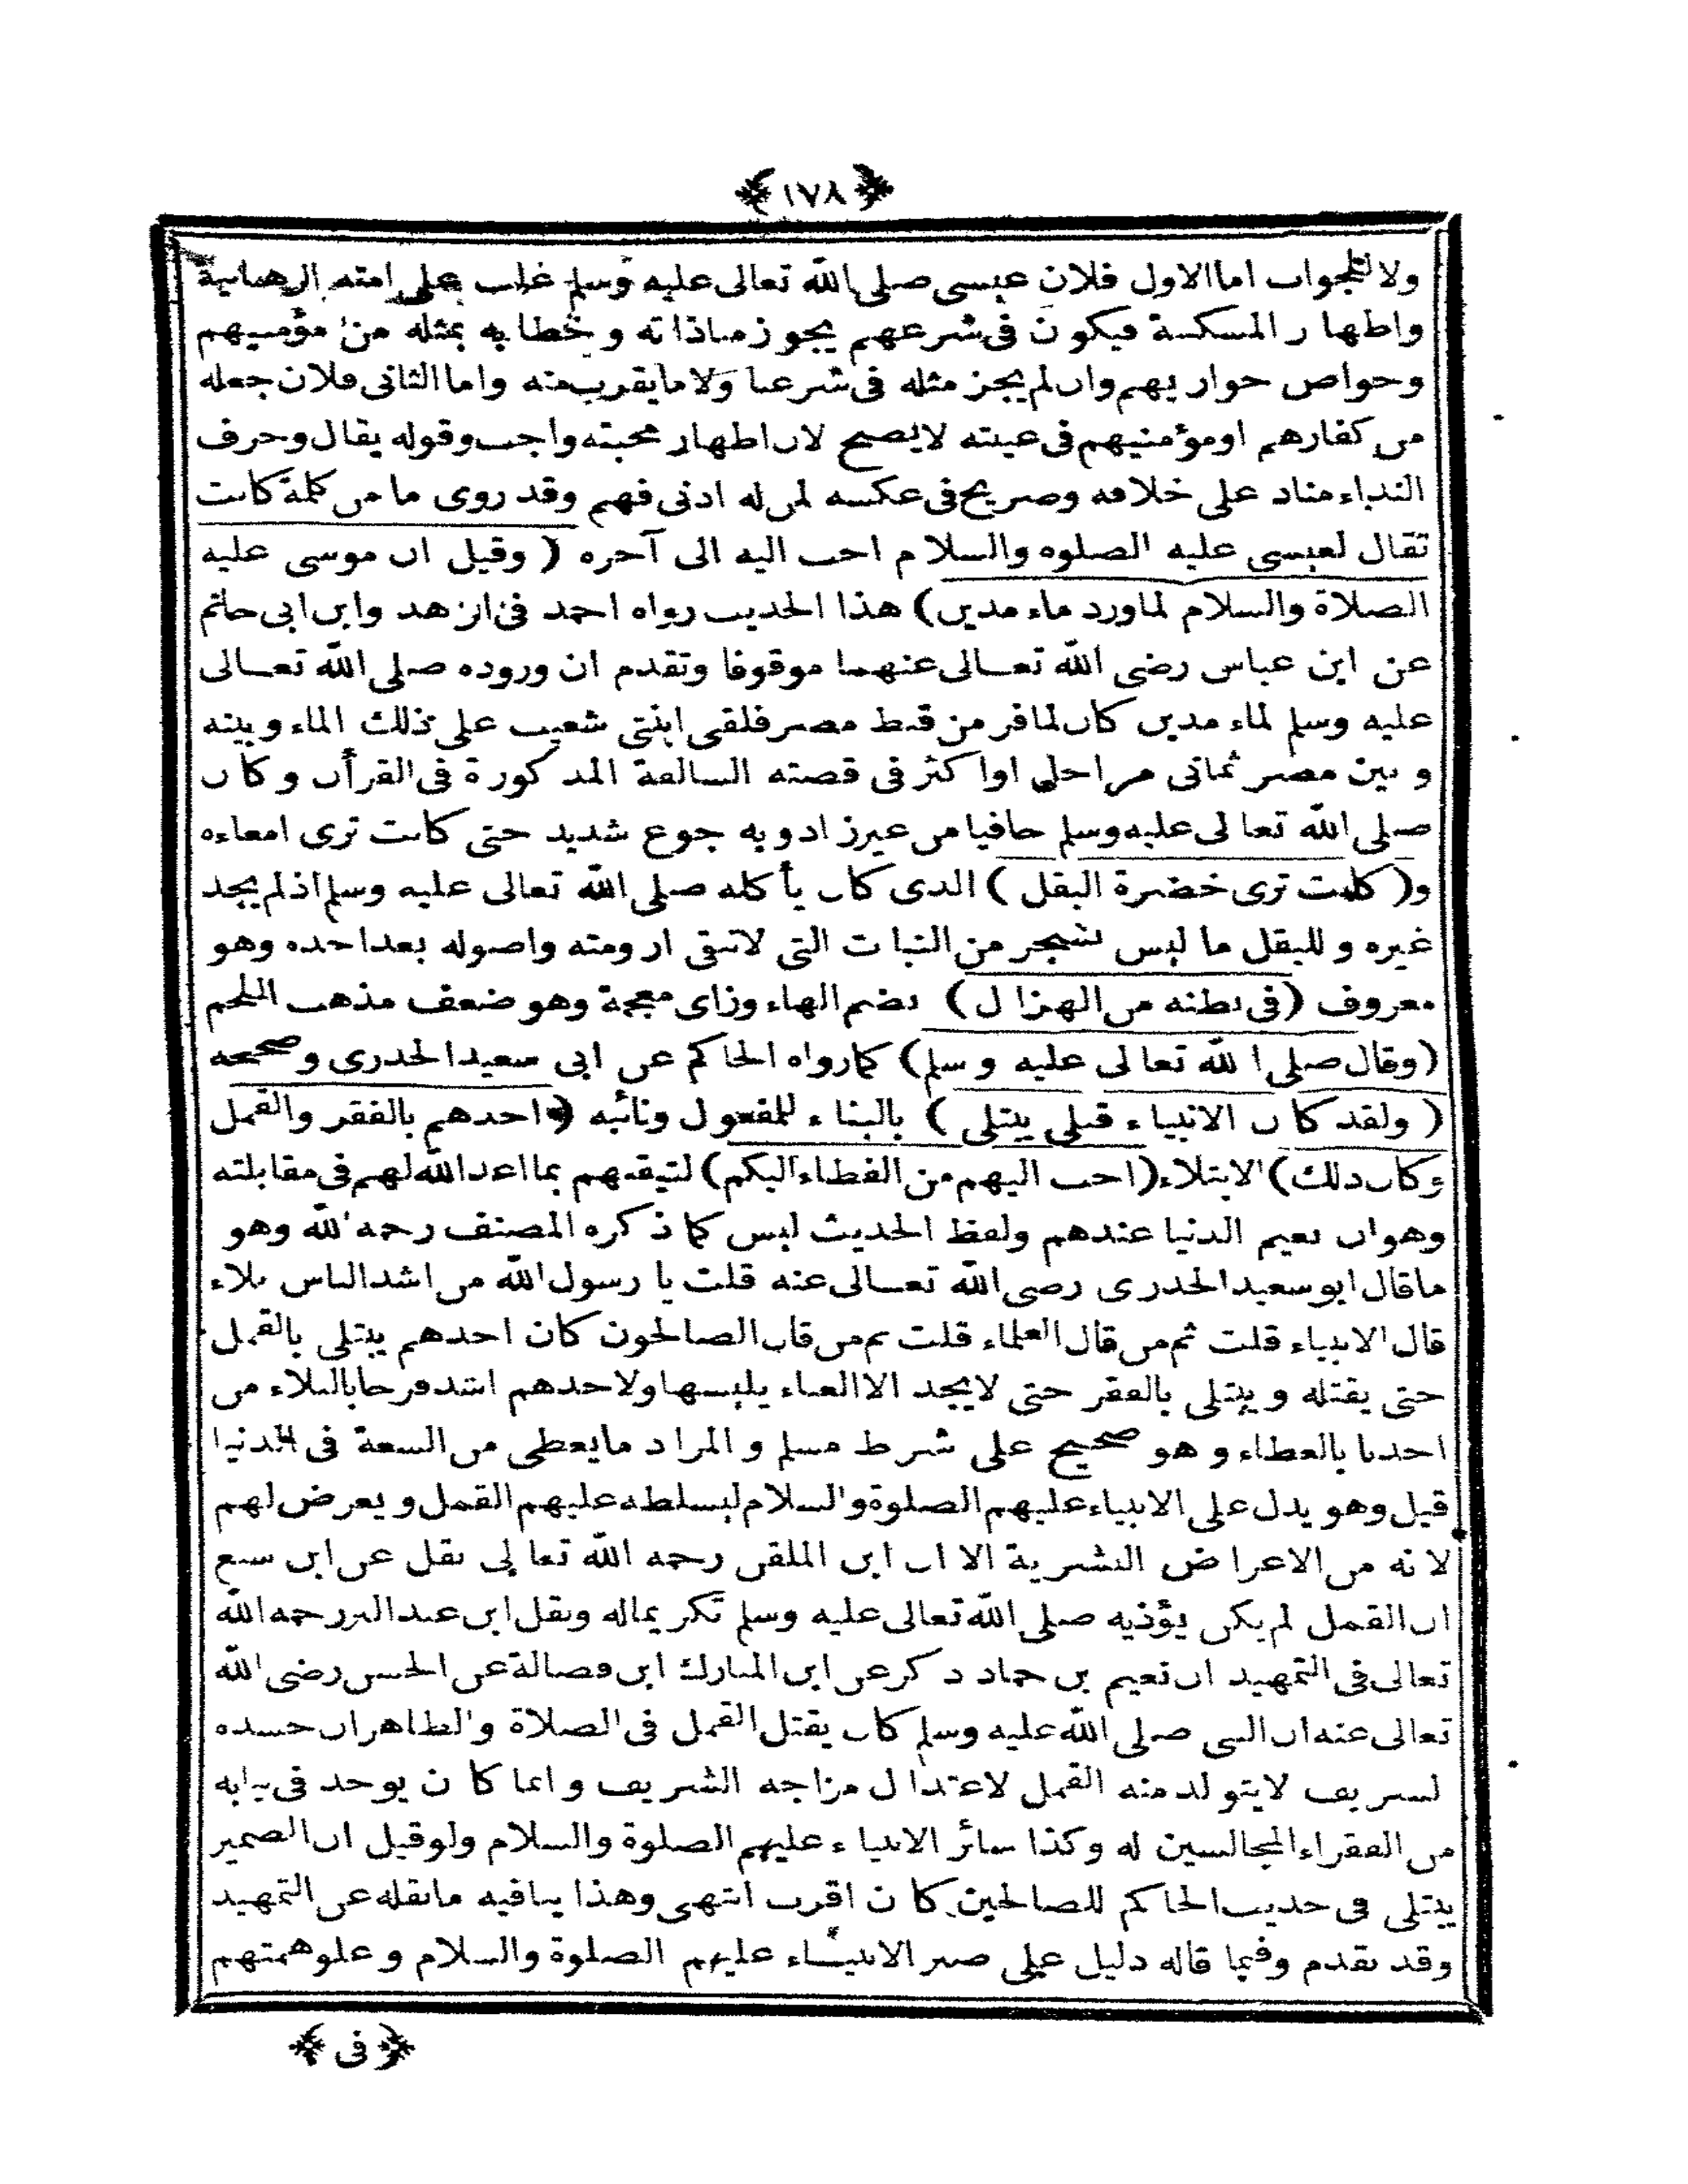 ١٧٨
ولا للجواب اما الاول فلان عيسى صلى الله تعالى عليه وسلم غلب على امته الرهبانية
واظهار المسكنة فيكون فى شرعهم يجوز مناداته وخطابه بمثله من مؤمنيهم
وخواص حواريهم وان لم يجز مثله فى شرعنا ولا ما يقرب منه واما الثانى فلان جعله
من كفارهم اومؤمنيهم فى غيبته لايصح لان اظهار محبته واجب وقوله يقال وحرف
النداء مناد على خلافه وصريح فى عكسه لمن له ادنى فهم وقد روى ما من كلمة كانت
تقال لعيسى عليه الصلوه والسلام احب اليه الى آخره ( وقيل ان موسى عليه
الصلاة والسلام لماورد ماء مدين) هذا الحديث رواه احمد فى الزهد وابن ابى حاتم
عن ابن عباس رضى الله تعالى عنهما موقوفا وتقدم ان وروده صلى الله تعالى
عليه وسلم لماء مدين كان لمافر من قبط مصر فلقى ابنتى شعيب على ذلك الماء وبينه
وبين مصر ثمانى مراحل اواكثر فى قصته السالفة المذكورة فى القرأن وكان
صلى الله تعالى عليه وسلم حافيا من غيرزاد وبه جوع شديد حتى كانت ترى امعاءه
و( كانت ترى خضرة البقل ) الذى كان يأكله صلى الله تعالى عليه وسلم اذ لم يجد
غيره وللبقل ما ليس بشجر من النبات التى لاتبقى ارومته واصوله بعد اخذه وهو
معروف (فى بطنه من الهزال ) بضم الهاء وزاى معجمة وهو ضعف مذهب اللحم
(وقال صلى الله تعالى عليه وسلم) كما رواه الحاكم عن ابى سعيد الخدرى وصححه
( ولقد كان الانبياء قبلى يبتلى ) بالبناء للمفعول ونائبه (احدهم بالفقر والقمل
وكان ذلك) الابتلاء (احب اليهم من العطاء اليكم) لتيقنهم بما اعد الله لهم فى مقابلته
وهوان نعيم الدنيا عندهم ولفظ الحديث ليس كما ذكره المصنف رحمه الله وهو
ماقال ابوسعيد الخدرى رضى الله تعالى عنه قلت يا رسول الله من اشد الناس بلاء
قال الانبياء قلت ثم من قال العلماء قلت ثم من قال الصالحون كان احدهم يبتلى بالقمل
حتى يقتله ويبتلى بالفقر حتى لايجد الا العباء يلبسها ولاحدهم اشد فرحا بالبلاء من
احدنا بالعطاء وهو صحيح على شرط مسلم والمراد مايعطى من السعة فى الدنيا
قيل وهو يدل على الانبياء عليهم الصلوة والسلام ليسلطه عليهم القمل ويعرض لهم
لانه من الاعراض البشرية الا ان ابن الملقن رحمه الله تعالى نقل عن ابن سبع
ان القمل لم يكن يؤذيه صلى الله تعالى عليه وسلم تكريماله ونقل ابن عبد البر رحمه الله
تعالى فى التمهيد ان نعيم بن حماد ذكر عن ابن المبارك ابن فضالة عن الحسن رضى الله
تعالى عنه ان النبى صلى الله عليه وسلم كان يقتل القمل فى الصلاة والظاهر ان جسده
لشريف لايتولد منه القمل لاعتدال مزاجه الشريف وانما كان يوجد فى ثيابه
من الفقراء المجالسين له وكذا سائر الانبياء عليهم الصلوة والسلام ولوقيل ان الضمير
يبتلى فى حديث الحاكم للصالحين كان اقرب انتهى وهذا ينافيه مانقله عن التمهيد
وقد تقدم وفيما قاله دليل على صبر الانبياء عليهم الصلوة والسلام وعلو همتهم
فى